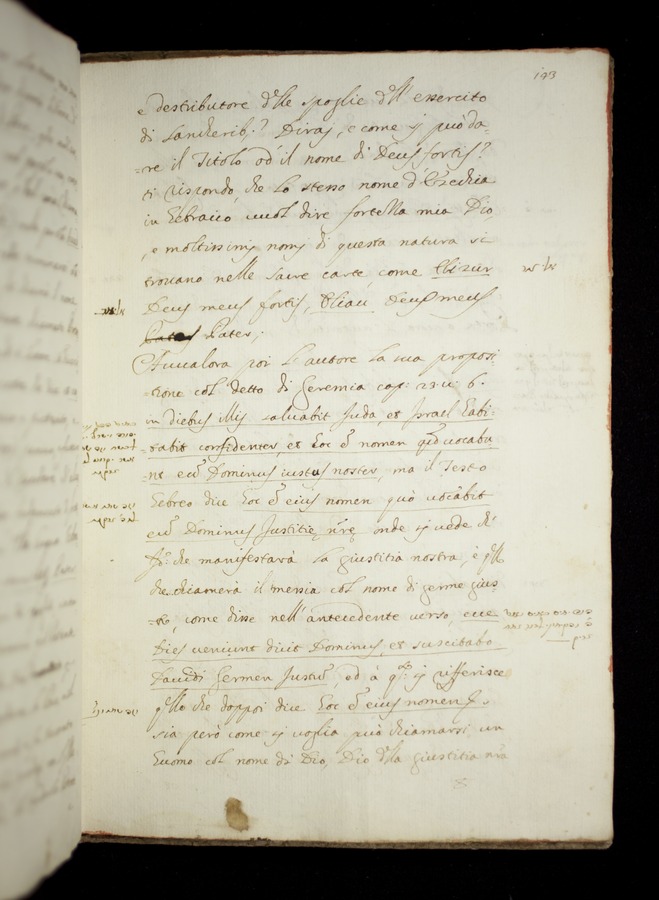 193
e destributore d'lle spoglie d'll esercito
di Sancherib,? Diraj, e come si può da-
-re il Titolo od il nome di Deus fortis?
ti rispondo, che lo stesso nome d'Ezechia
in Hebraico vuol dire fortezza mia Dio
, e moltissimi nomi di questa natura si
trovano nelle sacre carte, come Elizur
Deus meus fortis, Eliau Deus meus
Pater,
Avvalora poi l'autore la sua proposi
-tione col detto di Geremia cap: 23: v: 6.
in Diebus illis salvabit Juda, et Israel habi-
-tabit confidenter, et hoc ẽ nomen qđ vocabu
-nt eũ Dominus iustus noster, ma il Testo
Hebreo dice hoc ẽ eius nomen quò vocabit
eũ Dominus Justitię nr̃ę onde si vede ch'
che manifestarà la giustitia nostra, è q'llo
che chiamerà il messia col nome di germe gius-
-to, come disse nell'antecedente verso, ecce
Dies veniunt dicit Dominus, et suscitabo
Davidi Germen Justũ, ed à q̃sto si rifferisce
q'llo che doppoi dice hoc ẽ eius nomen &.
sia però come si voglia può chiamarsi un
huomo col nome di Dio, Dio d'lla giustitia nr̃a